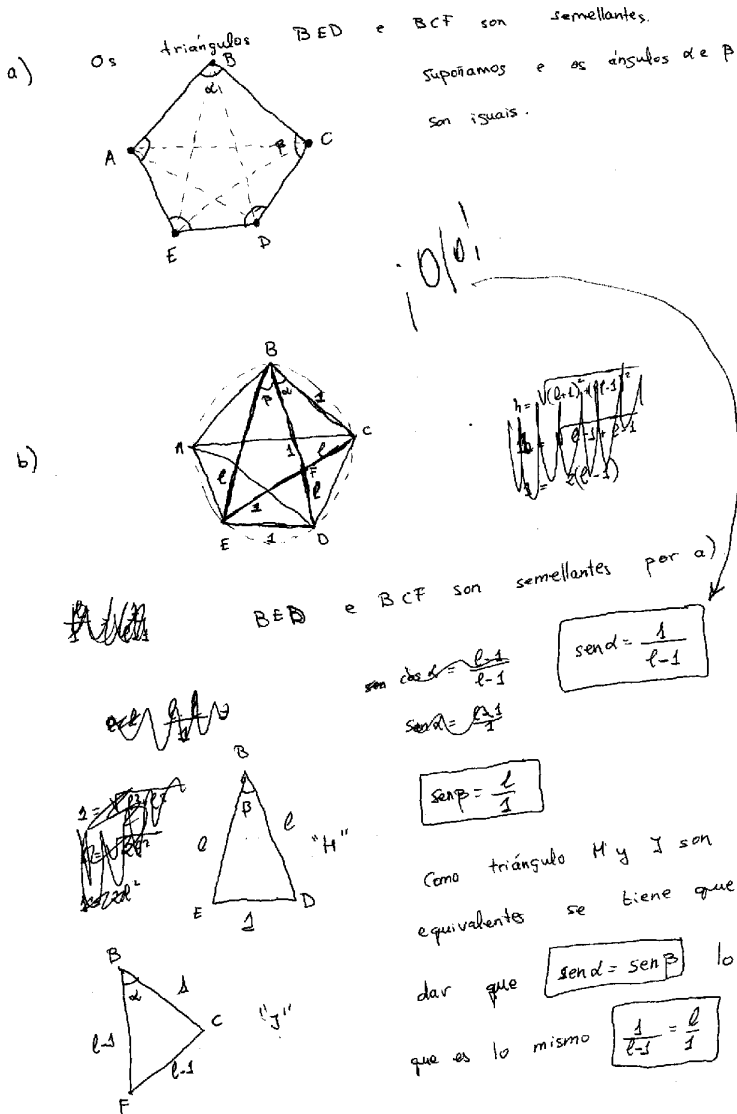 a) Os triángulos BED e BCF son semellantes.
Supoñamos e os ángulos α e β
son iguais.
B
α
A
β
C
E
D
¡Ollo!
b)
B
β α 1
A
C
l
1
l
F
l
1
E
1
D
BED e BCF son semellantes por a)
sen α = 1/(l-1)
sen β = l/1
B
β
l
l
"H"
E
1
D
Como triángulo H y J son
equivalentes se tiene que
dar que sen α = sen β lo
que es lo mismo 1/(l-1) = l/1
B
α
1
l-1
C
"J"
l-1
F